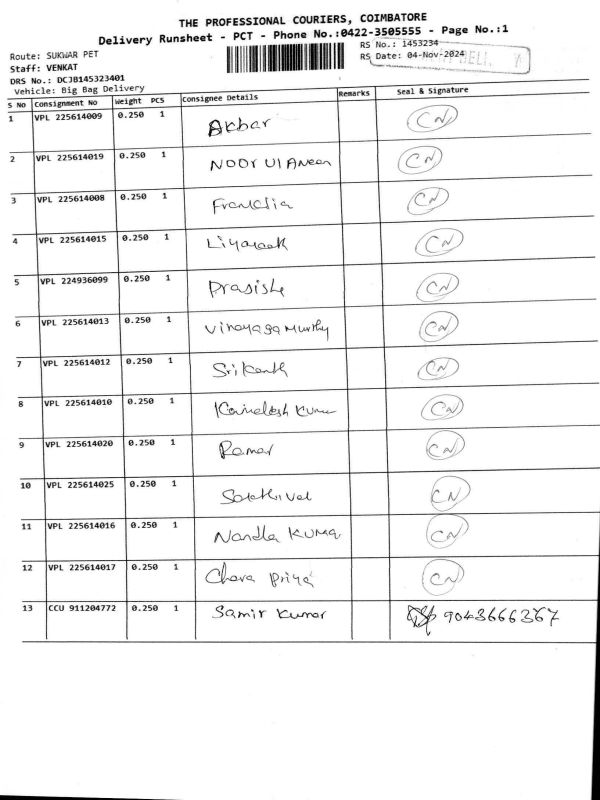 THE PROFESSIONAL COURIERS, COIMBATORE
Delivery Runsheet - PCT - Phone No.:0422-3505555 - Page No.:1
Route: SUKWAR PET RS No.: 1453234
Staff: VENKAT RS Date: 04-Nov-2024
DRS No.: DCJB145323401
Vehicle: Big Bag Delivery
S No Consignment No Weight PCS Consignee Details Remarks Seal & Signature
1 VPL 225614009 0.250 1 Akbar CN
2 VPL 225614019 0.250 1 NOOr Ul Ameen CN
3 VPL 225614008 0.250 1 Franklin CN
4 VPL 225614015 0.250 1 CN
5 VPL 224936099 0.250 1 CN
6 VPL 225614013 0.250 1 Vinayaga Murthy CN
7 VPL 225614012 0.250 1 Srikanth CN
8 VPL 225614010 0.250 1 Kumar CN
9 VPL 225614020 0.250 1 Ramar CN
10 VPL 225614025 0.250 1 CN
11 VPL 225614016 0.250 1 Nandha KUMar CN
12 VPL 225614017 0.250 1 Priya CN
13 CCU 911204772 0.250 1 Samir Kumar 9043666367